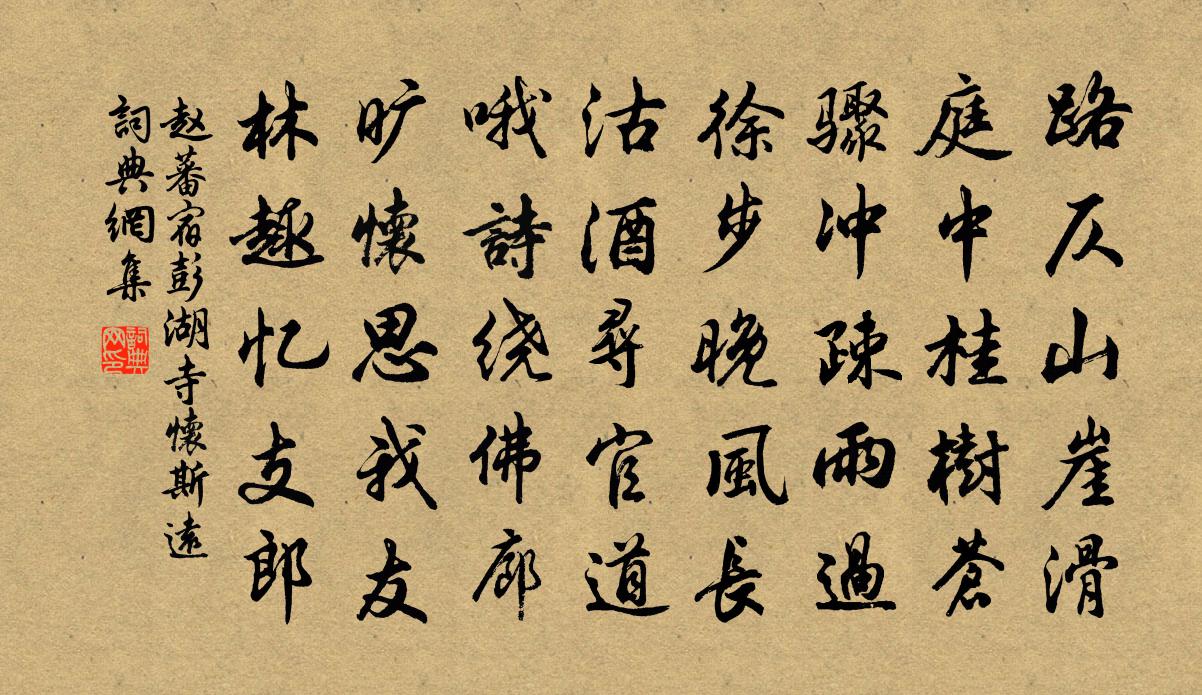 路仄山崖滑
庭中桂樹蒼
驟冲疎雨過
徐步晚風長
沽酒尋官道
哦詩绕佛廊
旷懷思我友
林趣忆支郎
赵蕃宿彭湖寺懷斯遠
詞典網集
詞典网印